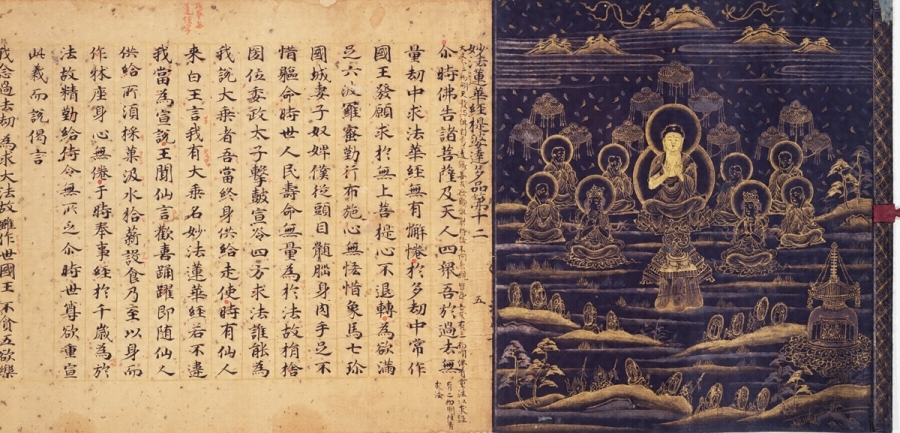 妙法蓮華經提婆達多品第十二
五
尒時佛告諸菩薩及天人四衆吾於過去無
量劫中求法華經無有懈惓於多劫中常作
國王發願求於無上菩提心不退轉為欲滿
足六波羅蜜勤行布施心無悋惜象馬七珍
國城妻子奴婢僕從頭目髓腦身肉手足不
惜軀命時世人民壽命無量為於法故捐捨
國位委政太子擊鼓宣令四方求法誰能為
我說大乘者吾當終身供給走使時有仙人
來白王言我有大乘名妙法蓮華經若不違
我當為宣說王聞仙言歡喜踊躍即随仙人
供給所須採菓汲水拾薪設食乃至以身而
作牀座身心無惓于時奉事經於千歲為於
法故精勤給侍令無所乏尒時世尊欲重宣
此義而說偈言
我念過去劫 為求大法故 雖作世國王 不貪五欲樂